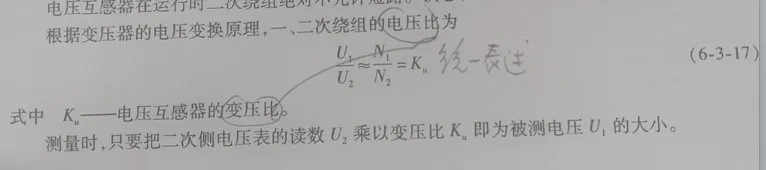 根据变压器的电压变换原理,一、二次绕组的电压比为
U₁/U₂≈N₁/N₂=Kᵤ 统一表述
(6-3-17)
式中 Kᵤ——电压互感器的变压比。
测量时,只要把二次侧电压表的读数 U₂ 乘以变压比 Kᵤ 即为被测电压 U₁ 的大小。